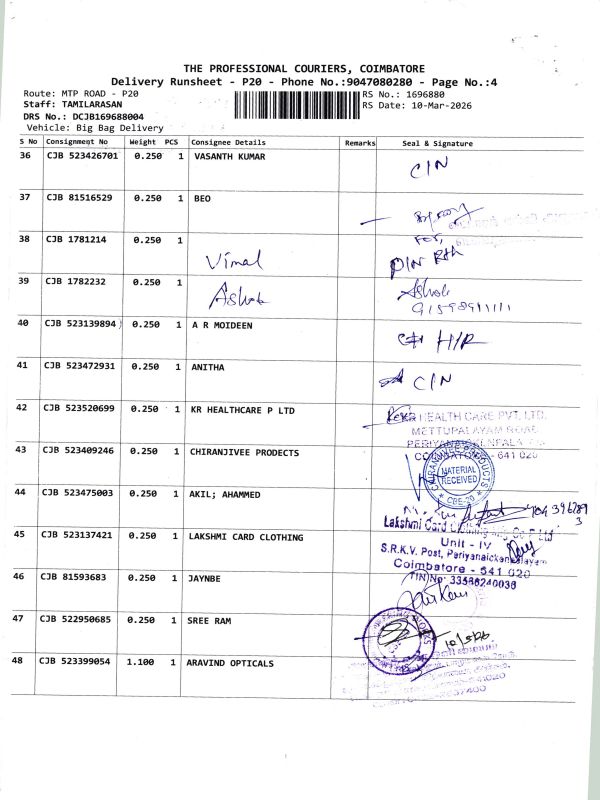 THE PROFESSIONAL COURIERS, COIMBATORE
Delivery Runsheet - P20 - Phone No.:9047080280 - Page No.:4
Route: MTP ROAD - P20
RS No.: 1696880
Staff: TAMILARASAN
RS Date: 10-Mar-2026
DRS No.: DCJB169688004
Vehicle: Big Bag Delivery
S No Consignment No Weight PCS Consignee Details Remarks Seal & Signature
36 CJB 523426701 0.250 1 VASANTH KUMAR CIN
37 CJB 81516529 0.250 1 BEO
For,
38 CJB 1781214 0.250 1 Vimal
39 CJB 1782232 0.250 1 Ashok Ashok
40 CJB 523139894 0.250 1 A R MOIDEEN H/R
41 CJB 523472931 0.250 1 ANITHA CIN
42 CJB 523520699 0.250 1 KR HEALTHCARE P LTD
KR HEALTH CARE PVT. LTD.
METTUPALAYAM ROAD
COIMBATORE - 641 020
43 CJB 523409246 0.250 1 CHIRANJIVEE PRODECTS
CHIRANJIVEE PRODUCTS
MATERIAL
RECEIVED
CBE-20
44 CJB 523475003 0.250 1 AKIL; AHAMMED
45 CJB 523137421 0.250 1 LAKSHMI CARD CLOTHING
Lakshmi Card Clothing
Unit - IV
S.R.K.V. Post, Periyanaickenpalayam
Coimbatore - 641 020
TIN No: 33586240036
46 CJB 81593683 0.250 1 JAYNBE
47 CJB 522950685 0.250 1 SREE RAM
48 CJB 523399054 1.100 1 ARAVIND OPTICALS